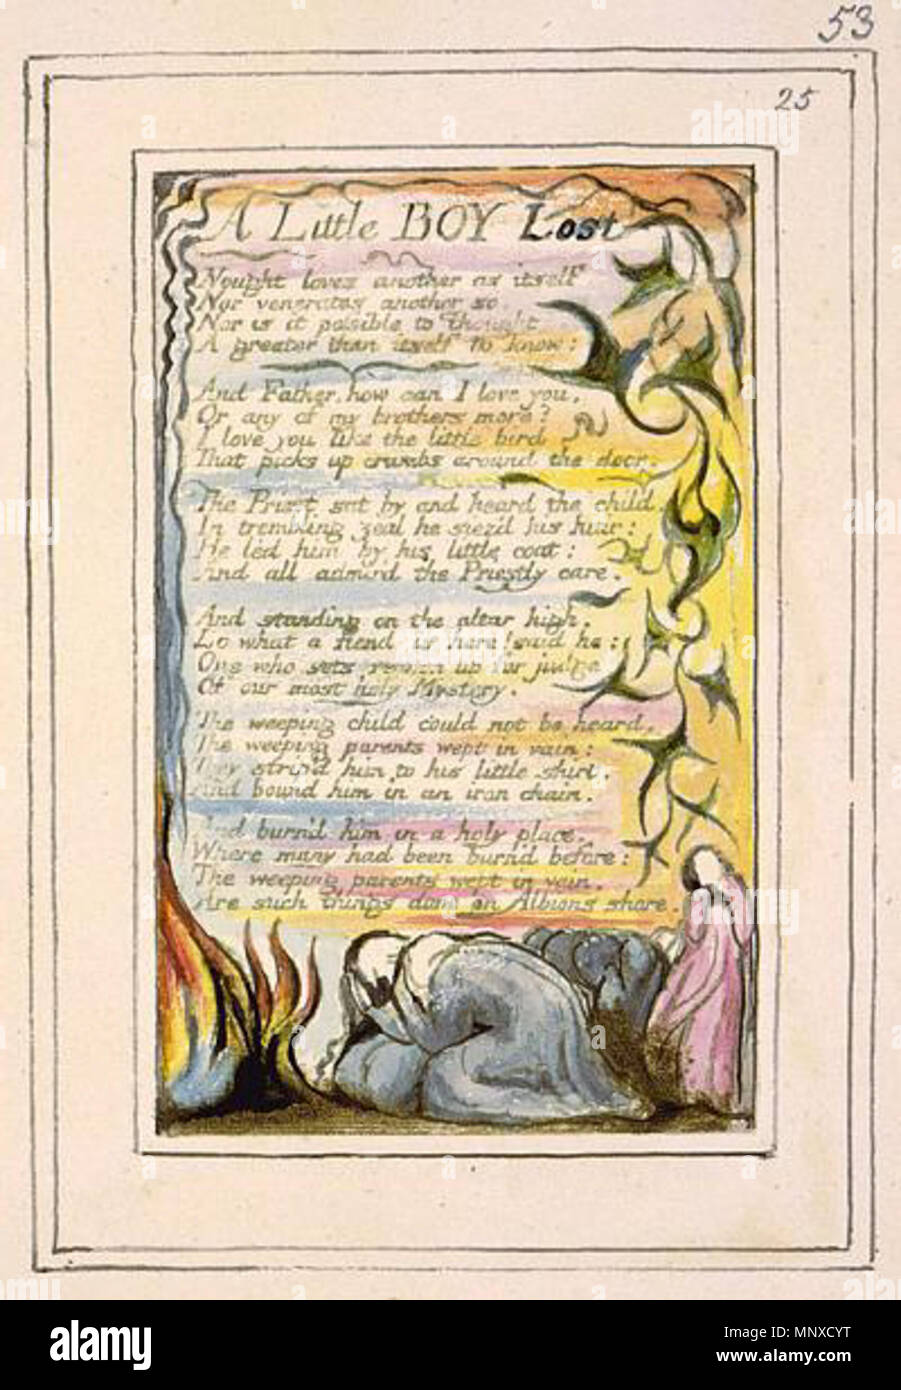 53
25
A Little BOY Lost
Nought loves another as itself
Nor venerates another so.
Nor is it possible to Thought
A greater than itself to know:
And Father, how can I love you,
Or any of my brothers more?
I love you like the little bird
That picks up crumbs around the door.
The Priest sat by and heard the child.
In trembling zeal he siez'd his hair:
He led him by his little coat:
And all admir'd the Priestly care.
And standing on the altar high,
Lo what a fiend is here! said he:
One who sets reason up for judge
Of our most holy Mystery.
The weeping child could not be heard.
The weeping parents wept in vain:
They strip'd him to his little shirt.
And bound him in an iron chain.
And burn'd him in a holy place,
Where many had been burn'd before:
The weeping parents wept in vain.
Are such things done on Albions shore.
alamy
Image ID: MNXCYT
www.alamy.com